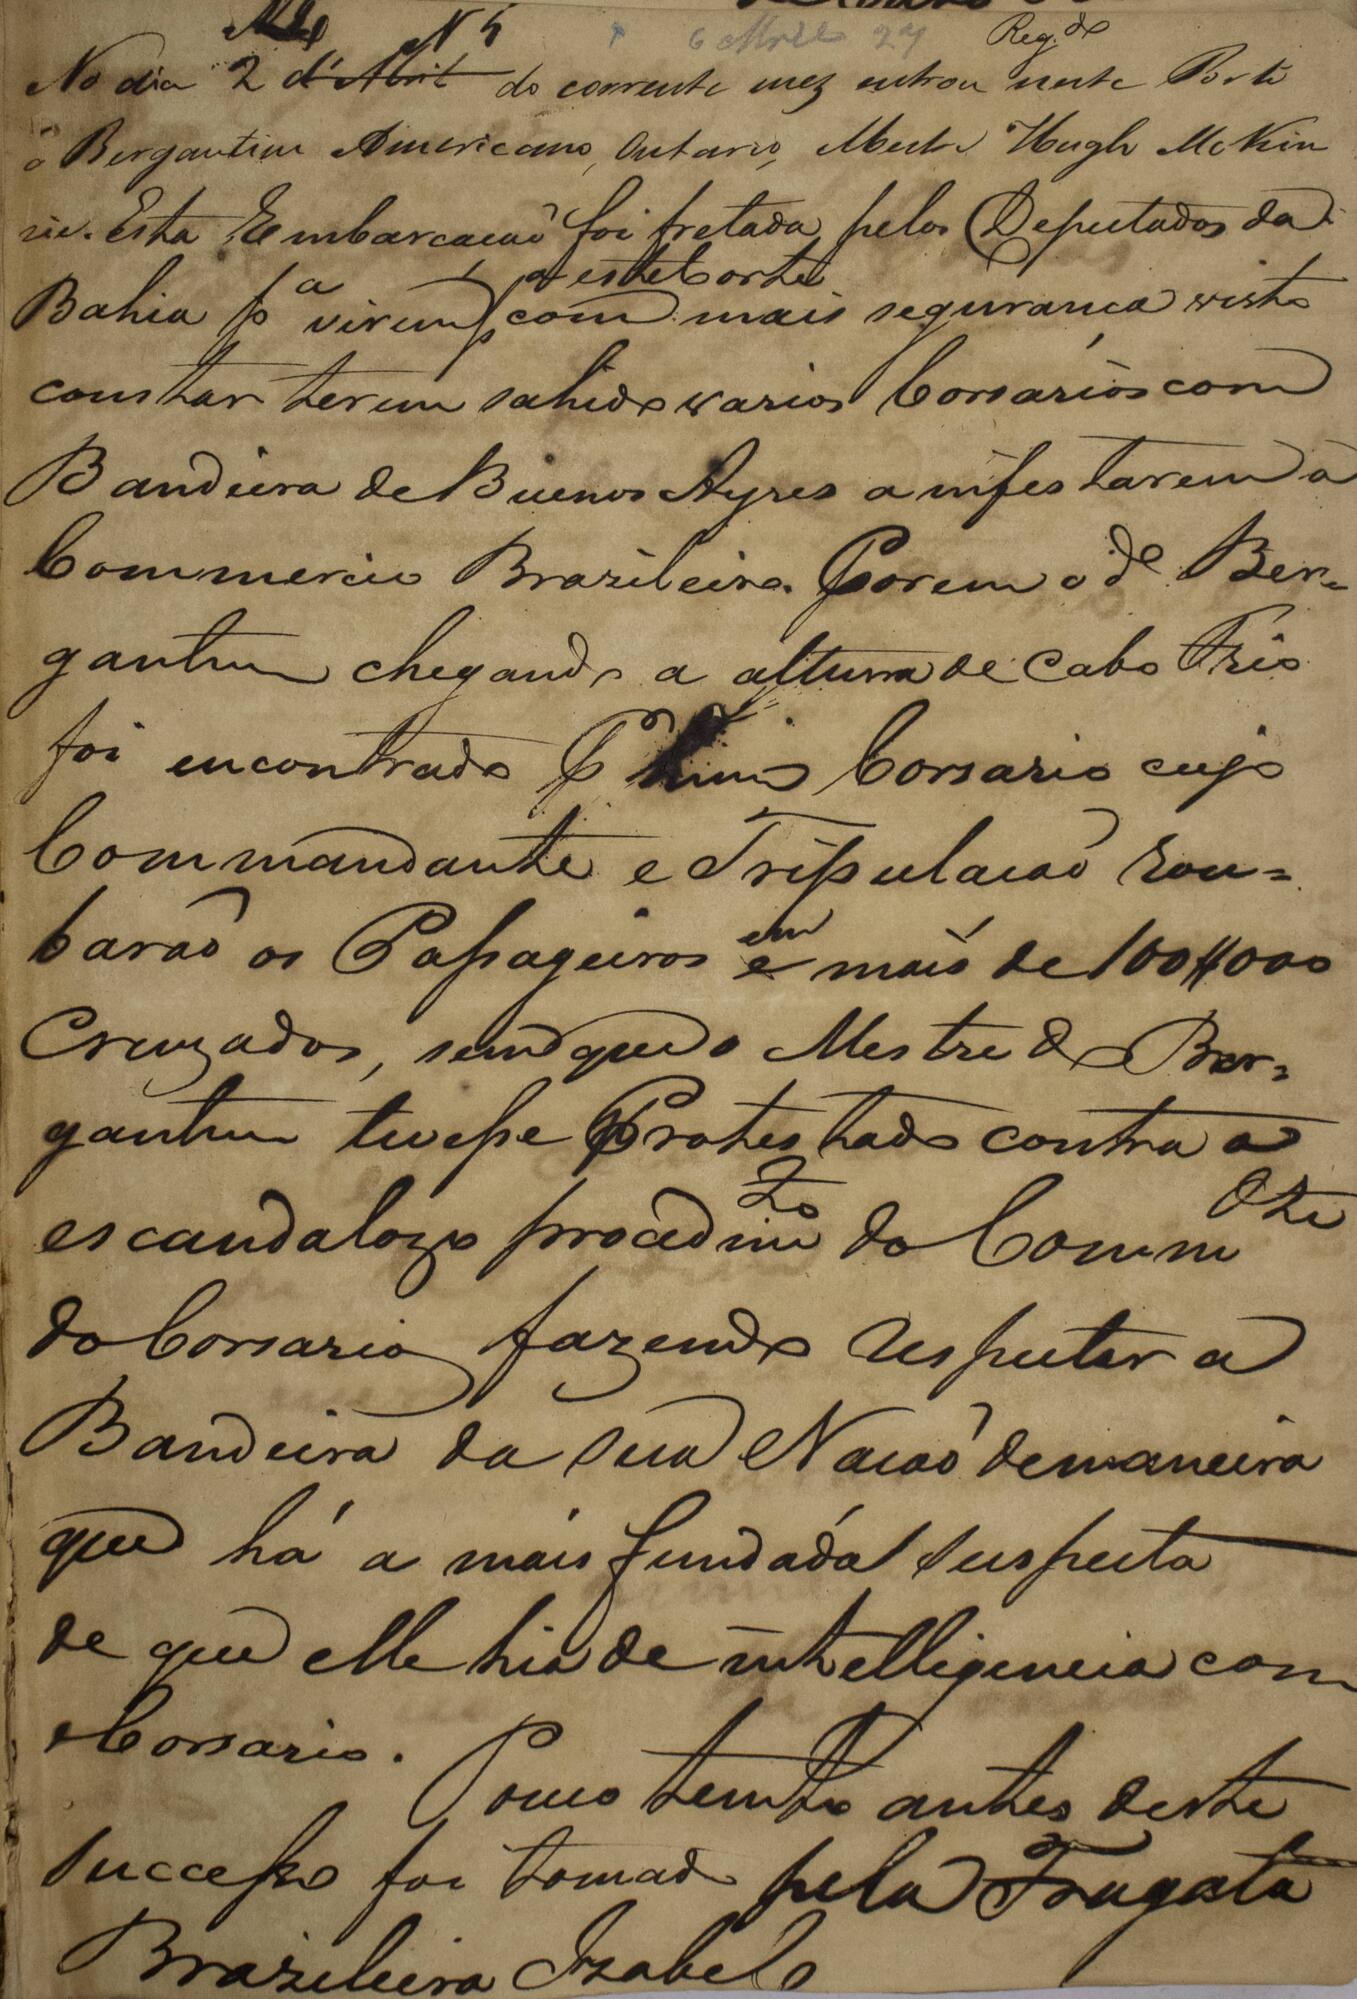 N 5 6 Abril 27 Reg.do
No dia 2 d'Abril do corrente mez entrou neste Porto
o Bergantim Americano, Ontario, Mestre Hugh McKin
zie. Esta Embarcacaõ foi fretada pelos Deputados da
Bahia pª virem a esta Corte com mais seguranca visto
constar terem sahido varios Corsarios com
Bandiera de Buenos Ayres a infestarem o
Commercio Brazileiro. Porem o do Ber=
gantim chegando a altura de Cabo Frio
foi encontrado p hum Corsario cujo
Commandante e Tripulacaõ rou=
baraõ os Passageiros em mais de 100#000
Cruzados, sem que o Mestre do Ber=
gantim tivesse Protestado contra o
escandalozo procedimto do Commdte
do Corsario fazendo respeitar a
Bandeira da sua Nacaõ de maneira
que há a mais fundada suspeita
de que elle hia de intelligencia com
o Corsario.
Pouco tempo antes deste
successo foi tomado pela Fragata
Brazileira Izabel